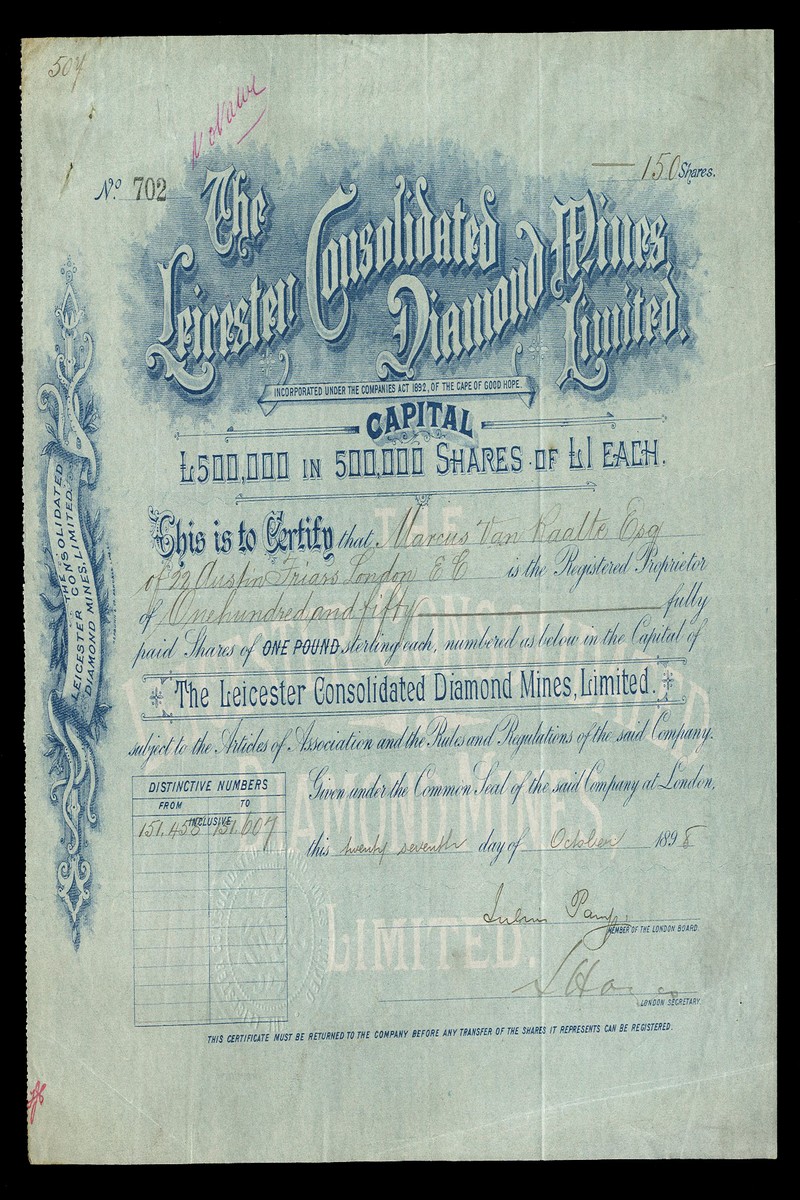 507
No. 702
150 Shares.
The
Leicester Consolidated
Diamond Mines
Limited.
INCORPORATED UNDER THE COMPANIES ACT 1892, OF THE CAPE OF GOOD HOPE.
CAPITAL
£500,000 IN 500,000 SHARES OF £1 EACH.
This is to Certify that Marcus Van Raalte Esq
of 22 Austin Friars London E C is the Registered Proprietor
of One hundred and fifty fully
paid Shares of ONE POUND sterling each, numbered as below in the Capital of
The Leicester Consolidated Diamond Mines, Limited.
subject to the Articles of Association and the Rules and Regulations of the said Company.
Given under the Common Seal of the said Company at London,
this twenty seventh day of October 1898
DISTINCTIVE NUMBERS
FROM TO
INCLUSIVE
151.458 151.607
MEMBER OF THE LONDON BOARD.
LONDON SECRETARY
THIS CERTIFICATE MUST BE RETURNED TO THE COMPANY BEFORE ANY TRANSFER OF THE SHARES IT REPRESENTS CAN BE REGISTERED.
THE
LEICESTER CONSOLIDATED
DIAMOND MINES, LIMITED.
THE
LEICESTER CONSOLIDATED
DIAMOND MINES,
LIMITED.